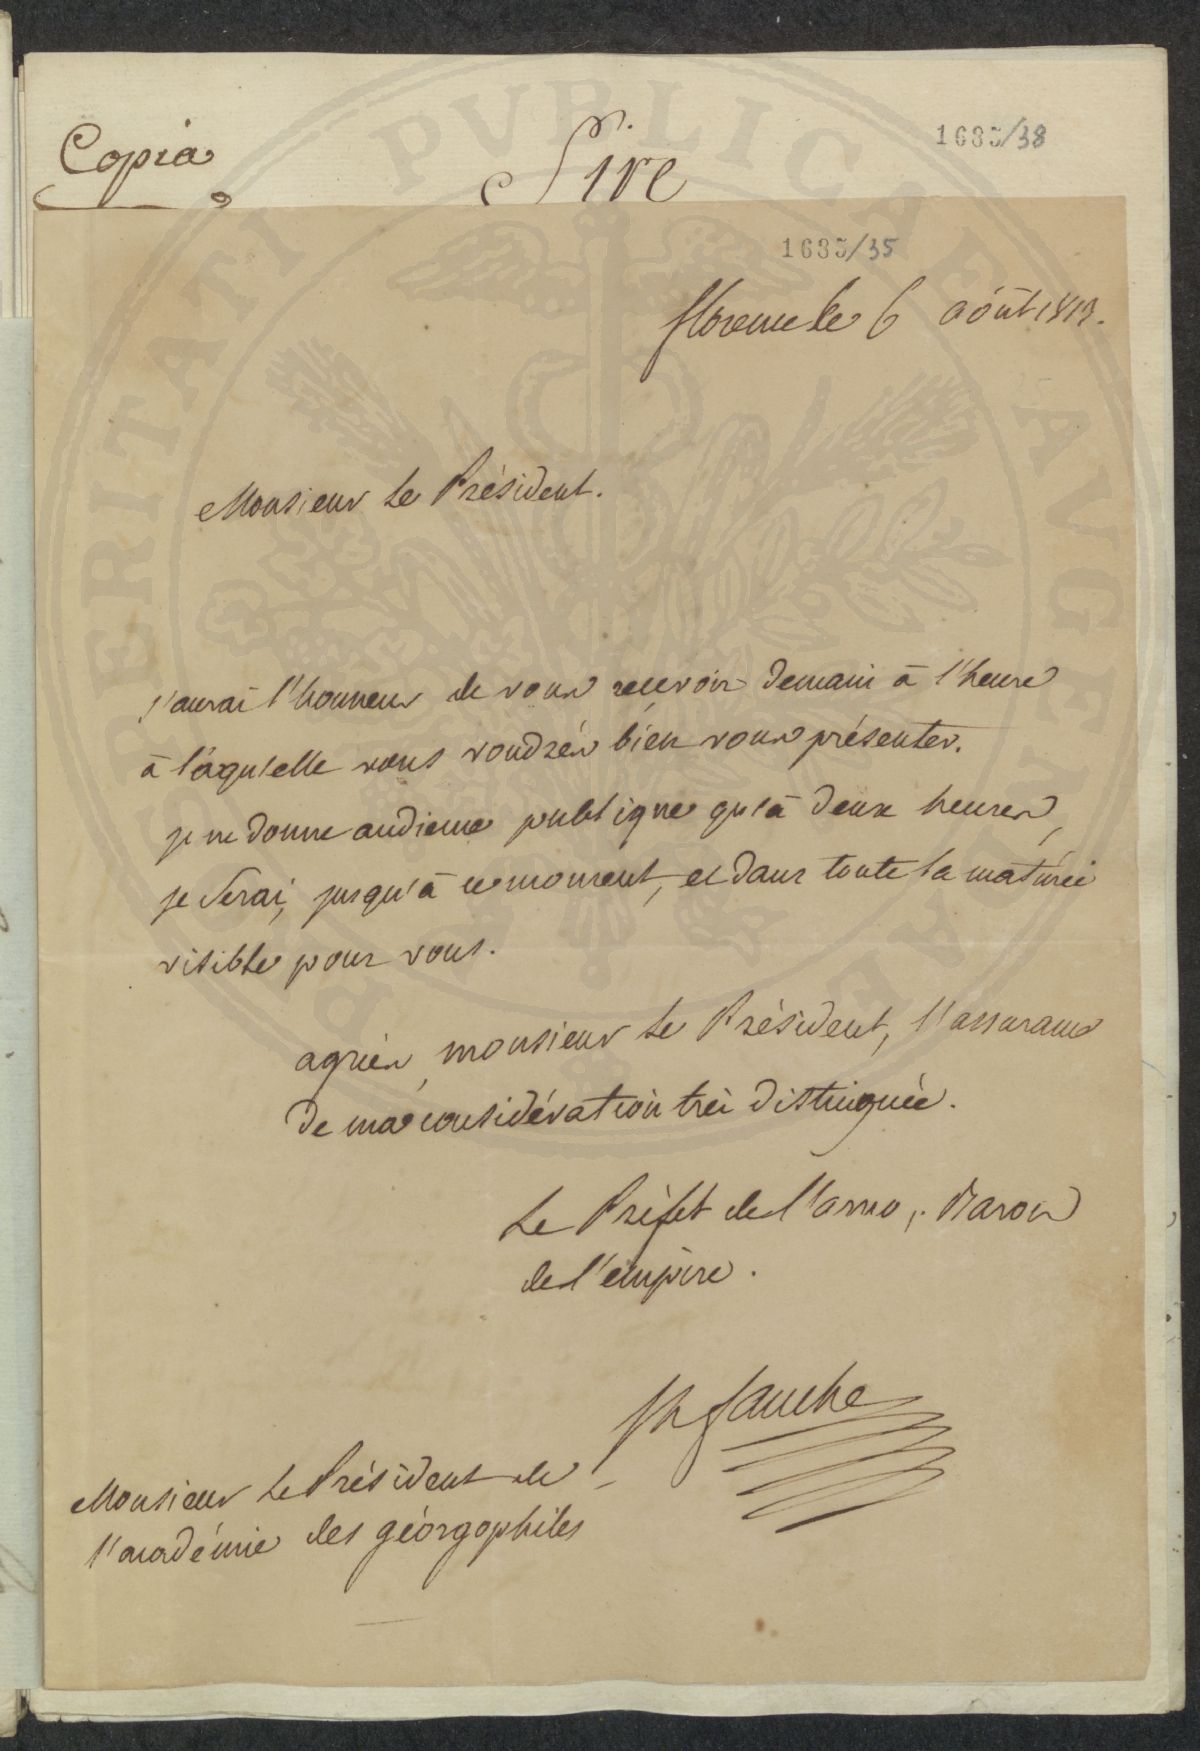 Copia
Sire
1683/38
1683/35
florence le 6 août 1813.
Monsieur le Président.
j'aurai l'honneur de vous recevoir demain à l'heure
à láqu'elle vous voudrés bien vous présenter.
je ne donne audience publique qu'à deux heures,
je serai, jusqu'à ce moment, et dans toute la matinée
visible pour vous.
agriés, monsieur le Président, l'assurance
de ma considération très distinguée.
Le Préfet de l'arno, Baron
de l'empire.
fauche
Monsieur le Président de
l'académie des géorgophiles
PROSPERITATI PVBLICAE AVGENDAE